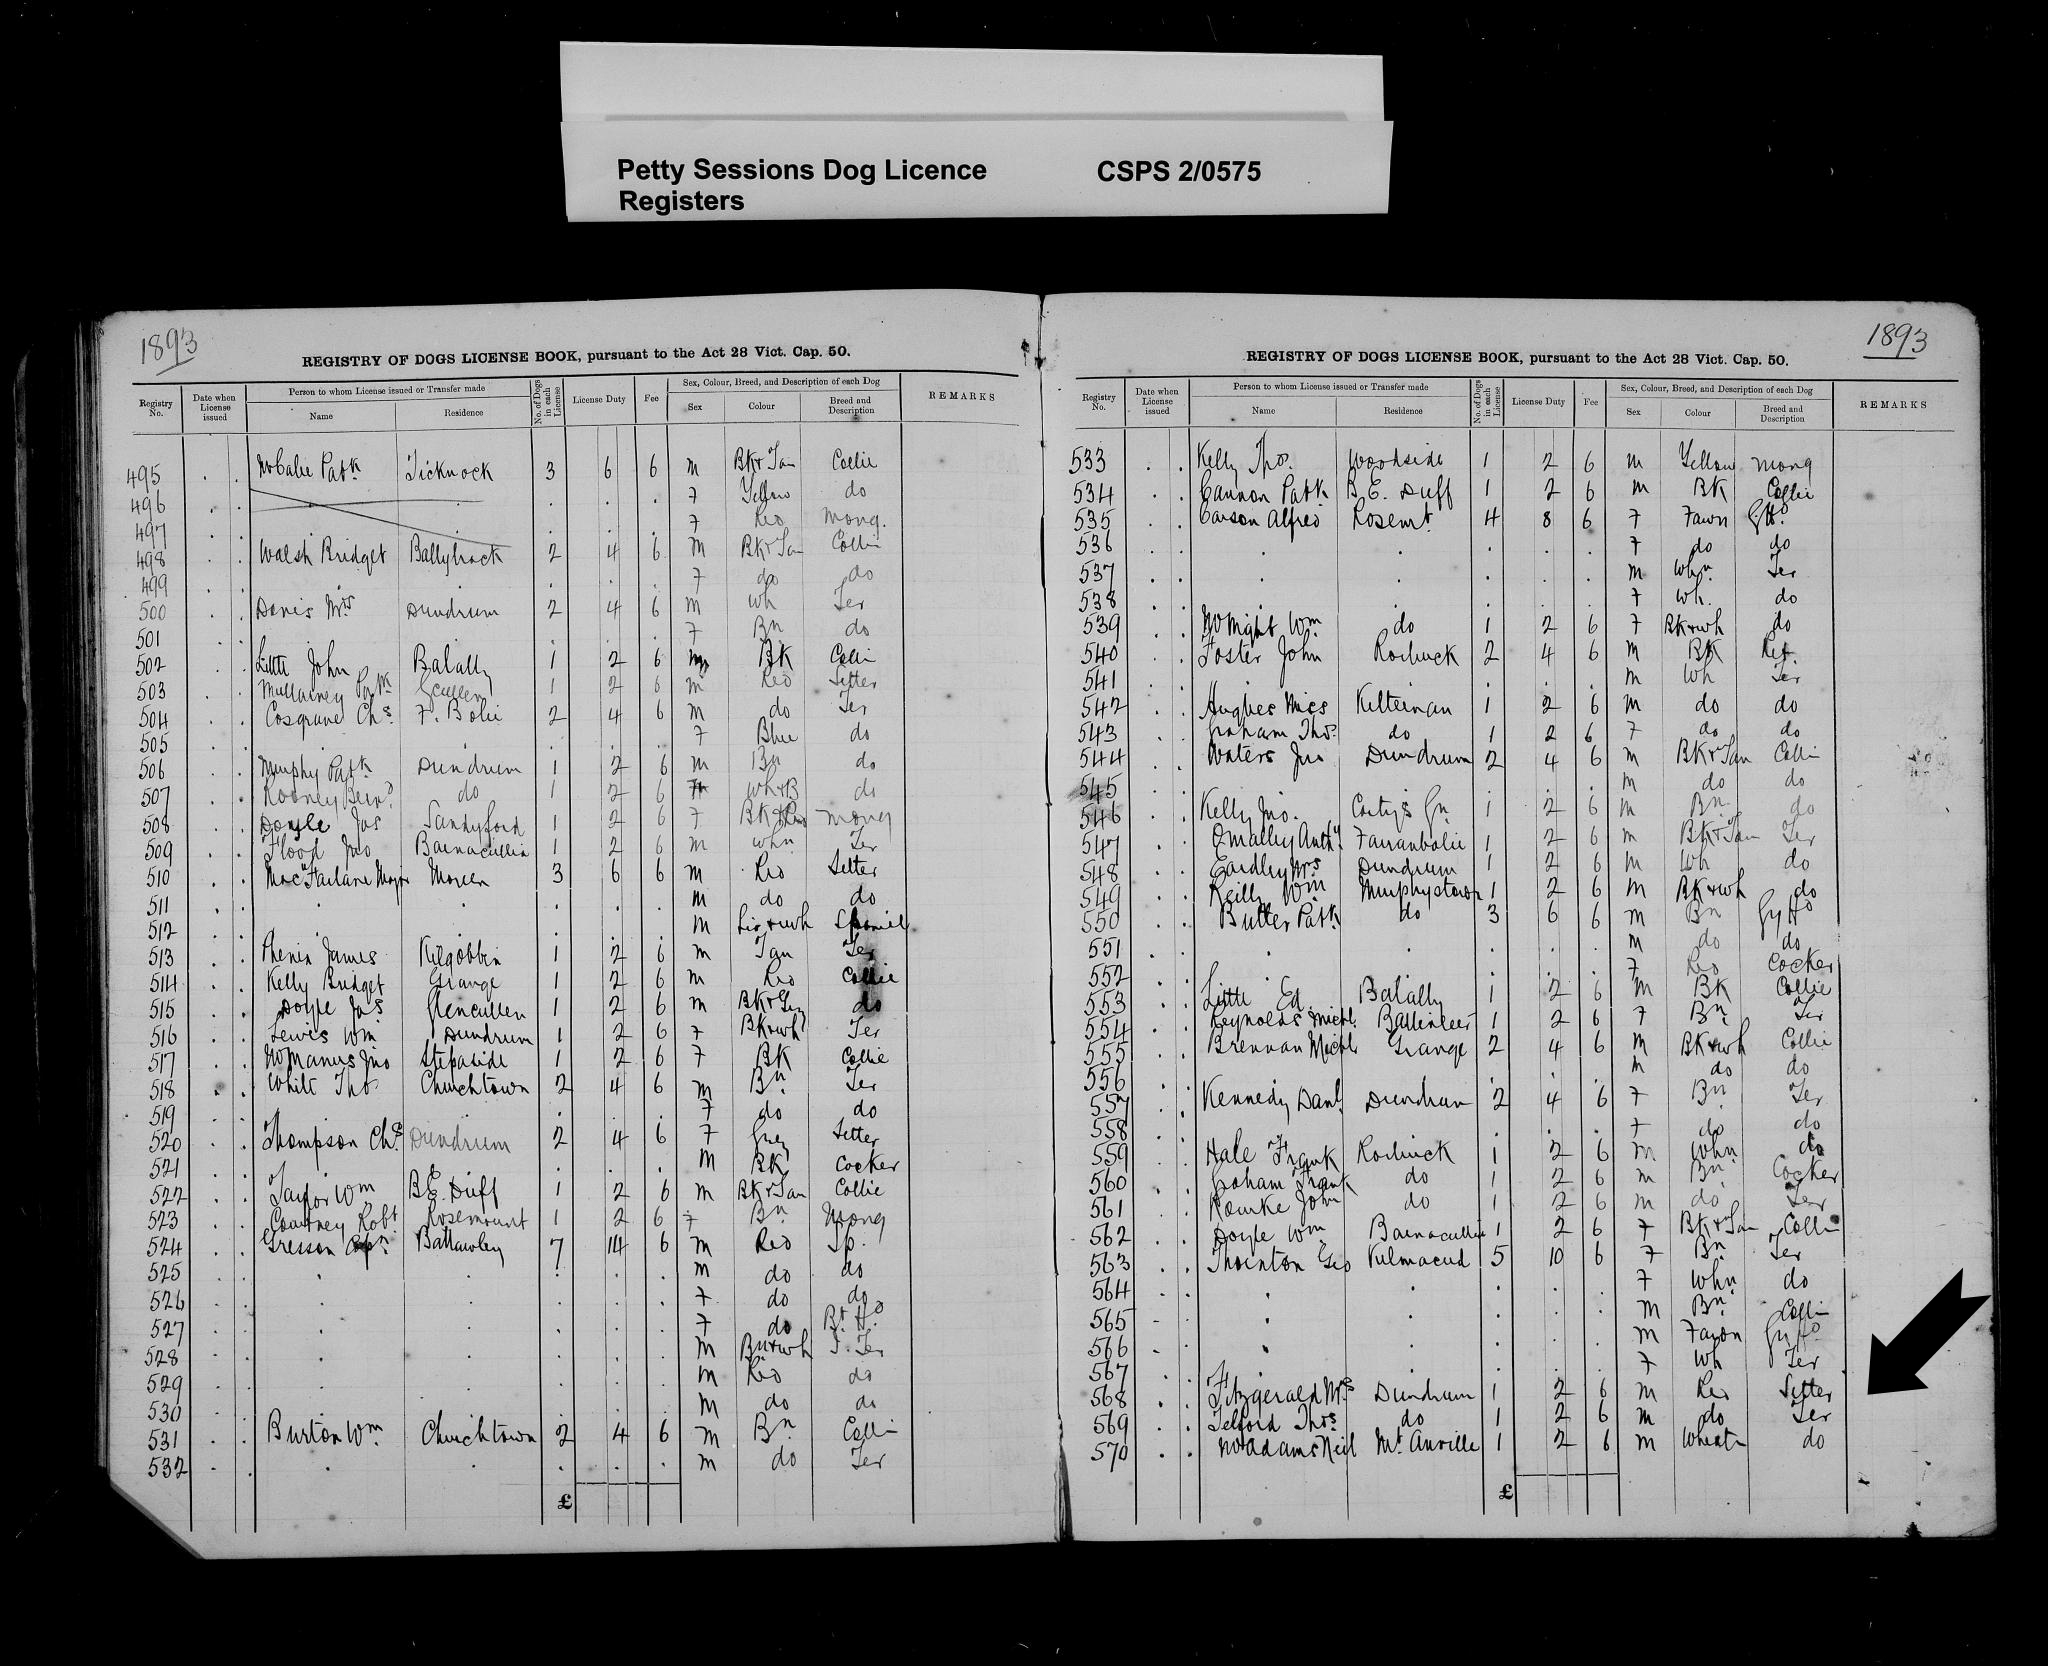 Petty Sessions Dog Licence CSPS 2/0575
Registers
1893
REGISTRY OF DOGS LICENSE BOOK, pursuant to the Act 28 Vict. Cap. 50.
Registry No. Date when License issued Person to whom License issued or Transfer made No. of Dogs in each License License Duty Fee Sex, Colour, Breed, and Description of each Dog REMARKS
Name Residence Sex Colour Breed and Description
495 McCabe Patk Ticknock 3 6 6 m Bk & Tan Collie
496 . . . . . F Yellow do
497 . . . . F Red Mong.
498 Walsh Bridget Ballybrack 2 4 6 m Bk & Tan Collie
499 . . . . . F do do
500 Davis Mrs Dundrum 2 4 6 m Wh Ter
501 . . . F Bn do
502 Little John Balally 1 2 6 m Bk Collie
503 Mullainey Patk Gcullen 1 2 6 m Red Setter
504 Cosgrave Chs. F. Bolie 2 4 6 m do Ter
505 . . . . . F Blue do
506 Murphy Patk Dundrum 1 2 6 m Bn do
507 Rooney Bernd do 1 2 6 Wh & B do
508 Doyle Jas Sandyford 1 2 6 F Bk & Red mong
509 Flood Jno Barnacullia 1 2 6 m Whn. Ter
510 MacFarlane Major Moreen 3 6 6 m Red Setter
511 . . . . . m do do
512 . . . . . m Liv & Wh Spaniel
513 James Kilgobbin 1 2 6 m Tan Ter
514 Kelly Bridget Grange 1 2 6 m Red Collie
515 Doyle Jas Glencullen 1 2 6 m Bk & Gy do
516 Lewis Wm Dundrum 1 2 6 F Bk & Wh Ter
517 McManus Jno Stepaside 1 2 6 F Bk Collie
518 White Thos Churchtown 2 4 6 m Bn. Ter
519 . . . F do do
520 Thompson Chs. Dundrum 2 4 6 F Grey Setter
521 . . . m Bk Cocker
522 Taylor Wm B.E. Duff 1 2 6 m Bk & Tan Collie
523 Courtney Robt Rosemount 1 2 6 F Bn. Mong
524 Gresson Capn Ballawley 7 14 6 m Red Sp.
525 . . . . . m do do
526 . . . . . F do do
527 . . . . . F do
528 . . . . . m Bn & Wh Ter
529 . . . . . m Red do
530 . . . . . m do do
531 Burton Wm. Churchtown 2 4 6 m Bn. Collie
532 . . . . . m do Ter
£
1893
REGISTRY OF DOGS LICENSE BOOK, pursuant to the Act 28 Vict. Cap. 50.
Registry No. Date when License issued Person to whom License issued or Transfer made No. of Dogs in each License License Duty Fee Sex, Colour, Breed, and Description of each Dog REMARKS
Name Residence Sex Colour Breed and Description
533 Kelly Thos. Woodside 1 2 6 m Yellow mong
534 Cannon Patk B. E. Duff 1 2 6 m Bk Collie
535 Carson Alfred Rosemt 4 8 6 F Fawn
536 . . . . . F do do
537 . . . . . m Whn. Ter
538 . . . . . F Wh. do
539 Wm. do 1 2 6 F Bk & Wh do
540 Foster John Roebuck 2 4 6 m Bk Ret.
541 . . . m Wh Ter
542 Hughes Miss Kilteirnan 1 2 6 m do do
543 Graham Thos. do 1 2 6 F do do
544 Waters Jno Dundrum 2 4 6 m Bk & Tan Collie
545 . . . m do do
546 Kelly Jno. Gn. 1 2 6 m Bn. do
547 O'Malley Anthy. Farranbolie 1 2 6 m Bk & Tan Ter
548 Eardley Mrs Dundrum 1 2 6 m Wh do
549 Reilly Wm Murphystown 1 2 6 m Bk & Wh do
550 Butler Patk. do 3 6 6 m Bn Gy Hd
551 . . . . . m do do
552 . . . F Red Cocker
553 Little Ed. Balally 1 2 6 m Bk Collie
554 Reynolds Michl. Ballinteer 1 2 6 F Bn. Ter
555 Brennan Michl Grange 2 4 6 m Bk & Wh Collie
556 . . . m do do
557 Kennedy Danl. Dundrum 2 4 6 F Bn. Ter
558 . . . F do do
559 Hale Frank Roebuck 1 2 6 m Whn do
560 Graham Frank do 1 2 6 m Bn. Cocker
561 Rourke John do 1 2 6 m do Ter
562 Doyle Wm Barnacullia 1 2 6 F Bk & Tan Collie
563 Thornton Geo Kilmacud 5 10 6 F Bn. Ter
564 . . . . . F Whn. do
565 . . . m Bn. Collie
566 . . . m Fawn Gy Hd.
567 . . . F Wh Ter
568 Fitzgerald Mrs Dundrum 1 2 6 m Red Setter
569 Telford Thos do 1 2 6 m do Ter
570 McAdams Neil Mt. Anville 1 2 6 m Wheatn do
£